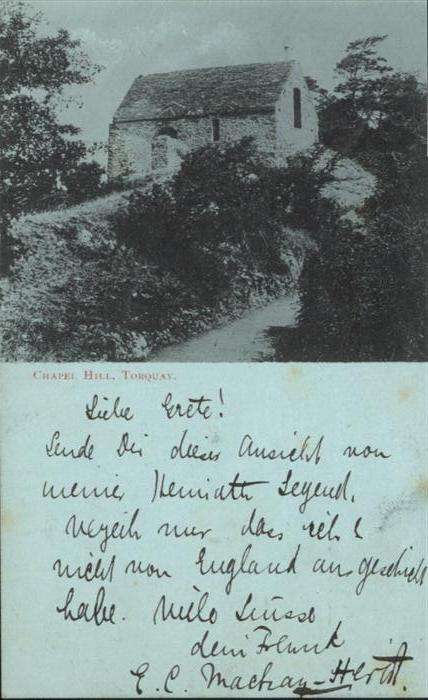 CHAPEL HILL, TORQUAY.
Liebe Grete!
Sende Dir dieser Ansicht von
meiner Heimath Legend.
Verzeih nur das ich
nicht von England aus geschickt
habe. Viele Grüsse
dein Freund
E. C. Mackay-